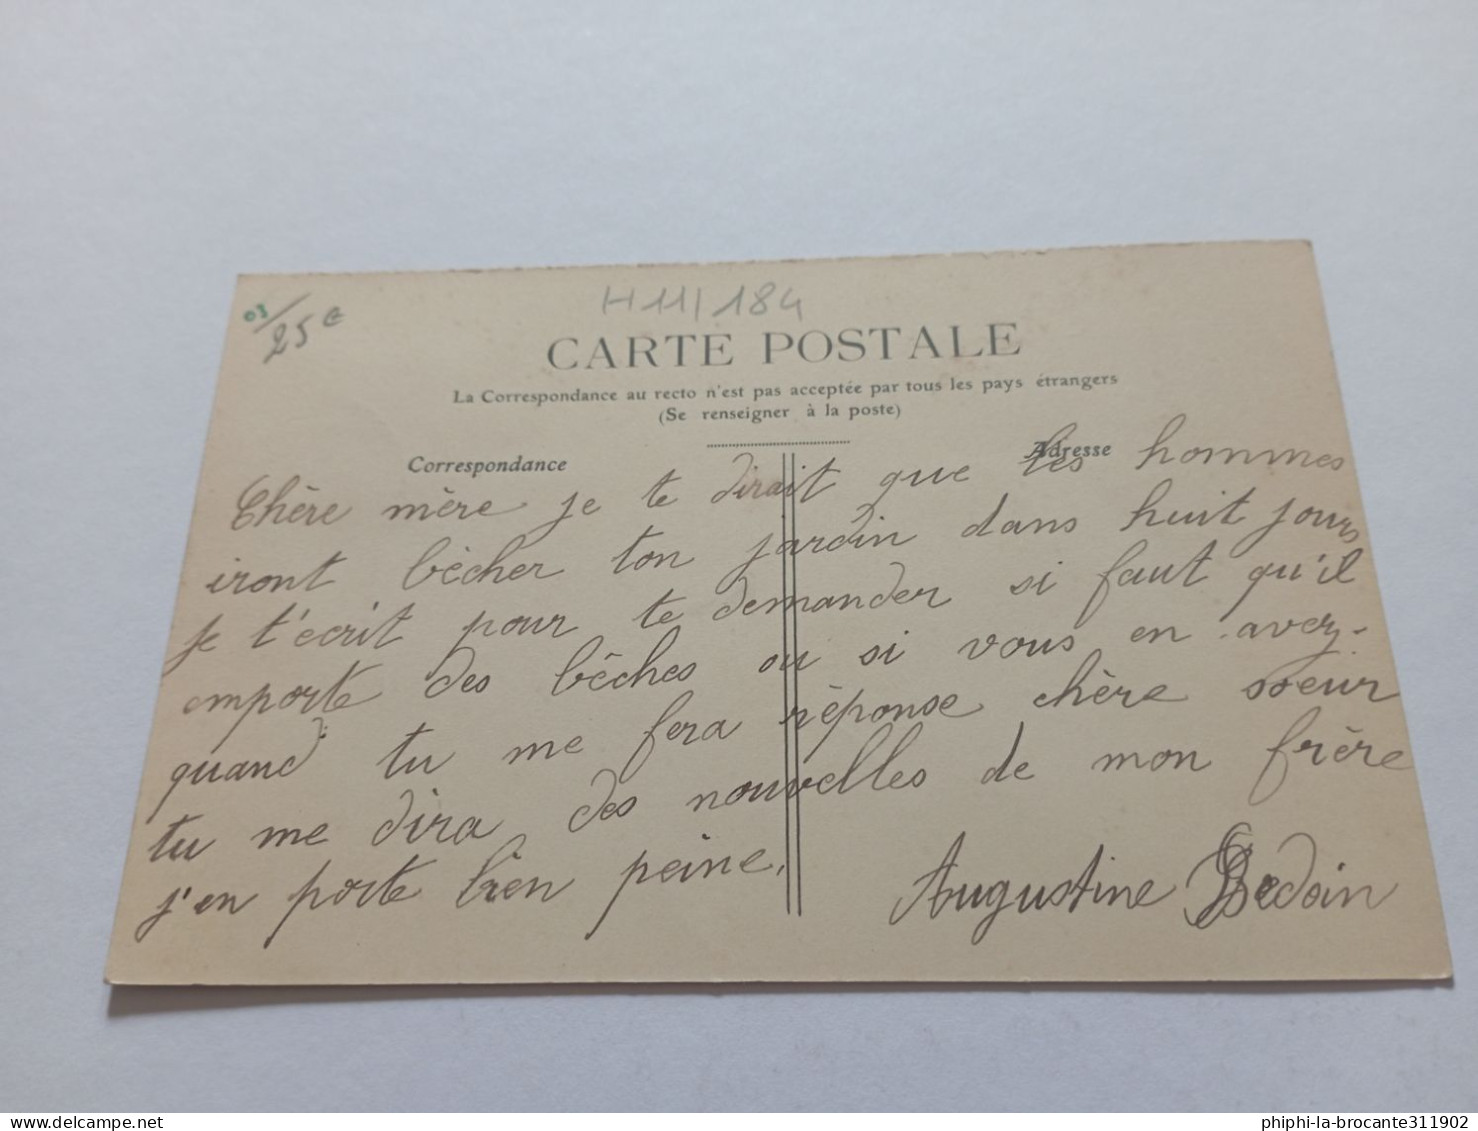 03/25€
H11/184
CARTE POSTALE
La Correspondance au recto n'est pas acceptée par tous les pays étrangers
(Se renseigner à la poste)
Correspondance
Adresse
Chère mère je te dirait que les hommes
iront bêcher ton jardin dans huit jours
je t'ecrit pour te demander si faut qu'il
emporte des bêches ou si vous en avez.
quand tu me fera réponse chère soeur
tu me dira des nouvelles de mon frère
j'en porte bien peine.
Augustine Bedoin
phiphi-la-brocante311902